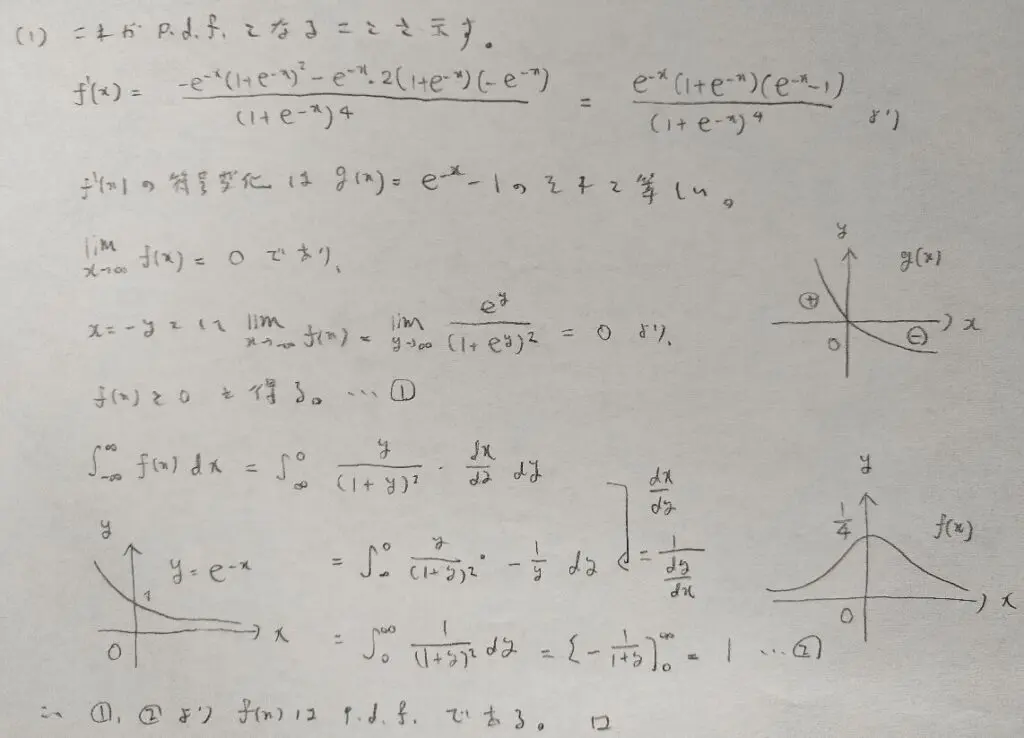 (1) これが p.d.f. となることを示す。
f'(x) = \frac{-e^{-x}(1+e^{-x})^2 - e^{-x}・2(1+e^{-x})(-e^{-x})}{(1+e^{-x})^4} = \frac{e^{-x}(1+e^{-x})(e^{-x}-1)}{(1+e^{-x})^4} より
f'(x) の符号変化は g(x) = e^{-x} - 1 のそれと等しい。
\lim_{x→∞} f(x) = 0 であり、
x = -y として \lim_{x→-∞} f(x) = \lim_{y→∞} \frac{e^y}{(1+e^y)^2} = 0 より、
y g(x) ⊕ ⊖ 0 x
f(x) ≥ 0 を得る。 … ①
∫_{-∞}^{∞} f(x) dx = ∫_{∞}^{0} \frac{y}{(1+y)^2} ・ \frac{dx}{dy} dy
= ∫_{∞}^{0} \frac{y}{(1+y)^2} ・ -\frac{1}{y} dy
\frac{dx}{dy} = \frac{1}{\frac{dy}{dx}}
y \frac{1}{4} f(x) 0 x
y y = e^{-x} 1 0 x
= ∫_{0}^{∞} \frac{1}{(1+y)^2} dy = [-\frac{1}{1+y}]_{0}^{∞} = 1 … ②
∴ ①, ② より f(x) は p.d.f. である。 □